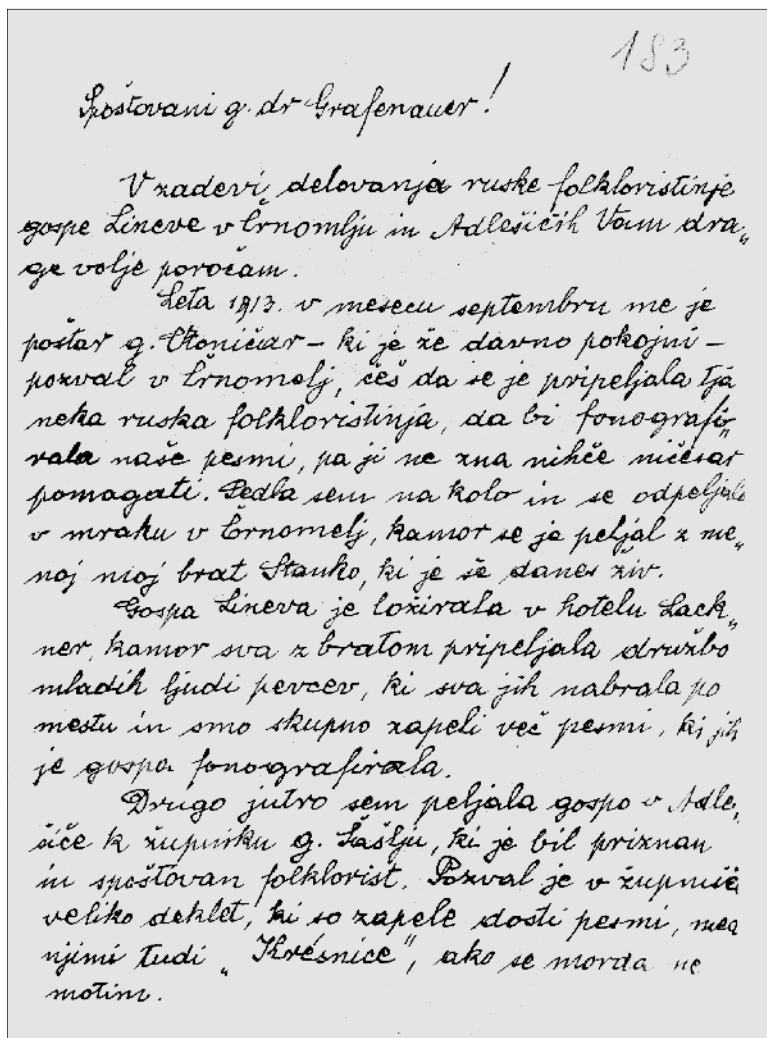 183
Spoštovani g. dr Grafenauer!
V zadevi delovanja ruske folkloristinje
gospe Lineve v Črnomlju in Adlešičih Vam dra„
ge volje poročam.
Leta 1913. v mesecu septembru me je
poštar g. – ki je že davno pokojni –
pozval v Črnomelj, češ da se je pripeljala tja
neka ruska folkloristinja, da bi fonografi„
rala naše pesmi, pa ji ne zna nihče ničesar
pomagati. Sedla sem na kolo in se odpeljala
v mraku v Črnomelj, kamor se je peljal z me„
noj moj brat Stanko, ki je še danes živ.
Gospa Lineva je ložirala v hotelu Lack„
ner, kamor sva z bratom pripeljala družbo
mladih ljudi pevcev, ki sva jih nabrala po
mestu in smo skupno zapeli več pesmi, ki jih
je gospa fonografirala.
Drugo jutro sem peljala gospo v Adle„
šiče k župniku g. Šašlju, ki je bil priznan
in spoštovan folklorist. Pozval je v župnišče
veliko deklet, ki so zapele dosti pesmi, med
njimi tudi „Kresnice", ako se morda ne
motim.